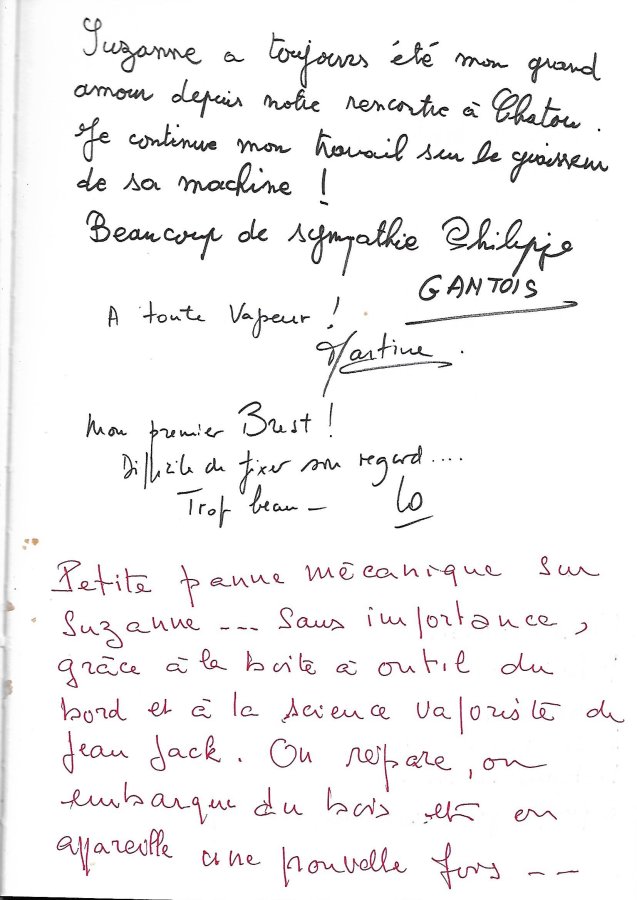 Suzanne a toujours été mon grand
amour depuis notre rencontre à Chatou.
Je continue mon travail sur le graisseur
de sa machine !
Beaucoup de sympathie Philippe
GANTOIS
A toute Vapeur !
Martine.
Mon premier Brest !
Difficile de fixer son regard....
Trop beau –
Lo
Petite panne mécanique sur
Suzanne --- Sans importance,
grâce à la boite à outil du
bord et à la science vaporiste de
Jean Jack. On réipare, on
embarque du bois et on
appareille une nouvelle fois --